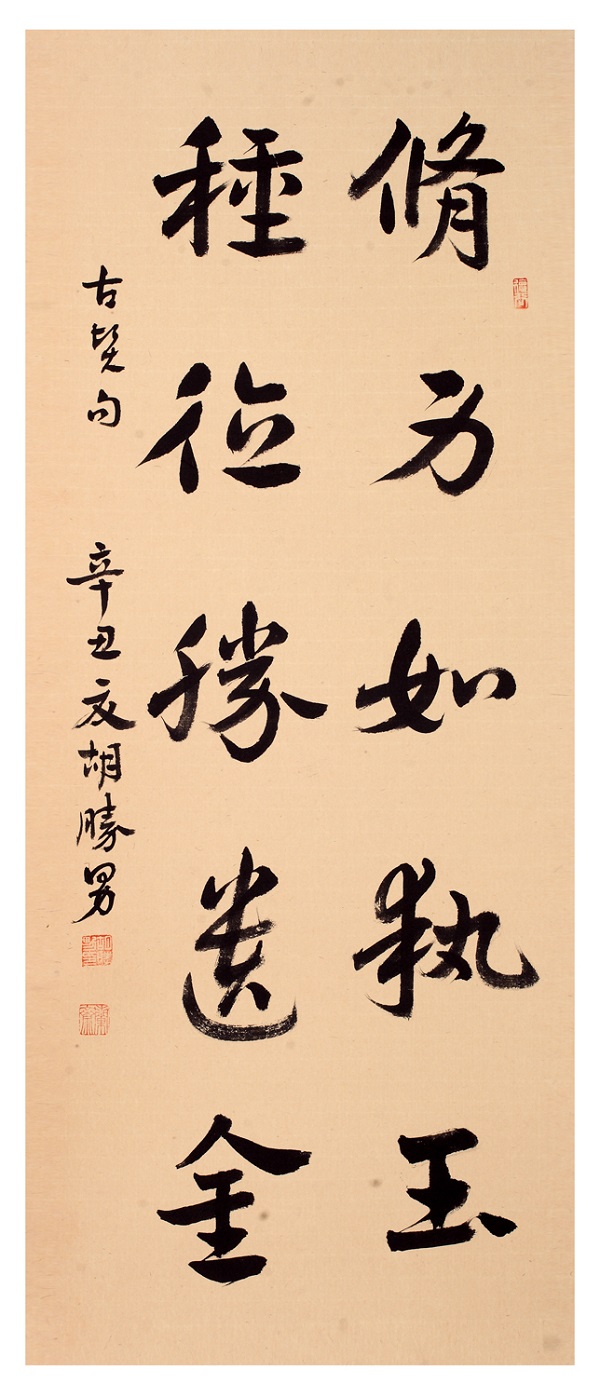 脩身如執玉
種德勝遺金
古賢句 辛丑夏胡勝男